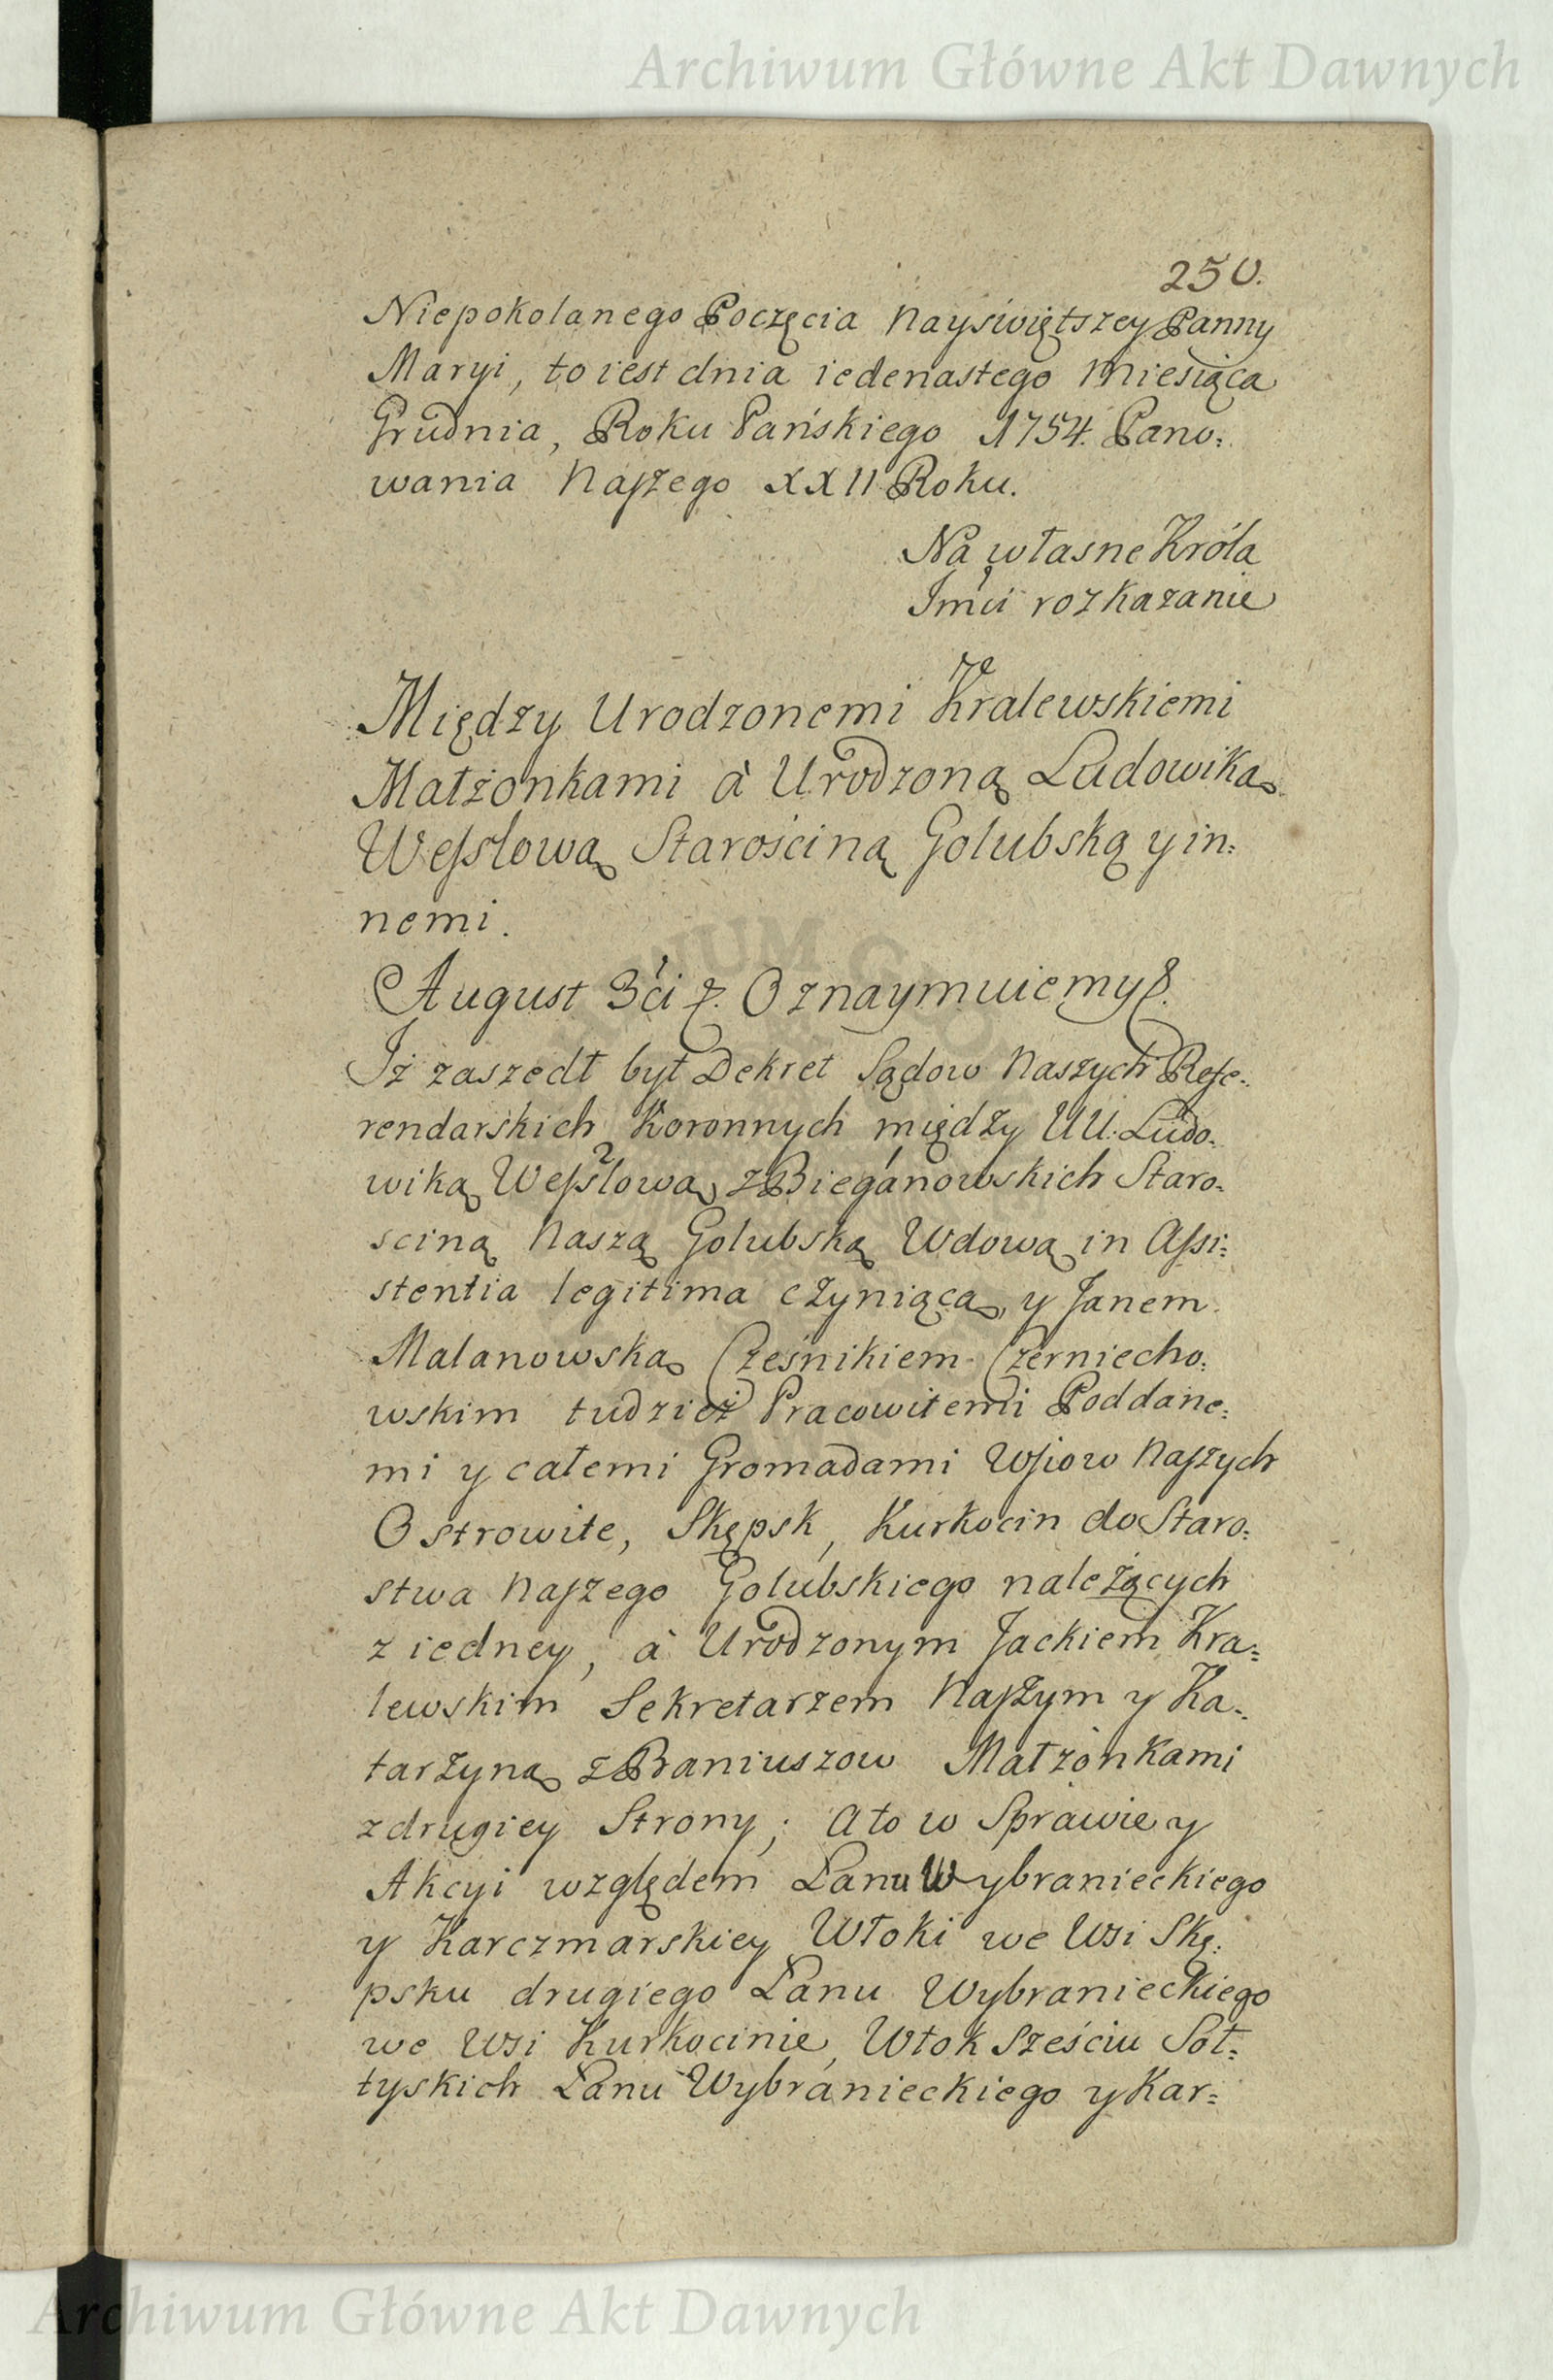 Archiwum Główne Akt Dawnych
250.
Niepokolanego Poczęcia Nayświętszey Panny
Maryi, to iest dnia iedenastego Miesiąca
Grudnia, Roku Pańskiego 1754. Pano:
wania Naszego XXII Roku.
Na własne Króla
Jmći rozkazanie
Między Urodzonemi Kralewskiemi
Małżonkami à Urodzoną Ludowiką
Wesslową Starościną Golubską y in:
nemi.
August 3ći &. Oznaymuiemy &.
Iż zaszedł był Dekret Sądow Naszych Refe:
rendarskich Koronnych między UU. Ludo:
wiką Wesslową z Bieganowskich Staro:
sciną Naszą Golubską Wdową in Assi:
stentia legitima czyniącą, y Janem
Malanowską Cześnikiem Czerniecho:
wskim tudzież Pracowitemi Poddane:
mi y całemi Gromadami Wsiow Naszych
Ostrowite, Skępsk, Kurkocin do Staro:
stwa Naszego Golubskiego należących
z iedney, à Urodzonym Jackiem Kra:
lewskim Sekretarzem Naszym y Ka:
tarzyną z Braniuszow Małżonkami
z drugiey Strony; a to w Sprawie y
Akcyi względem Łanu Wybranieckiego
y Karczmarskiey Włoki we Wsi Skę:
psku drugiego Łanu Wybranieckiego
we Wsi Kurkocinie, Włok Sześciu Soł:
tyskich Łanu Wybranieckiego y Kar:
Archiwum Główne Akt Dawnych